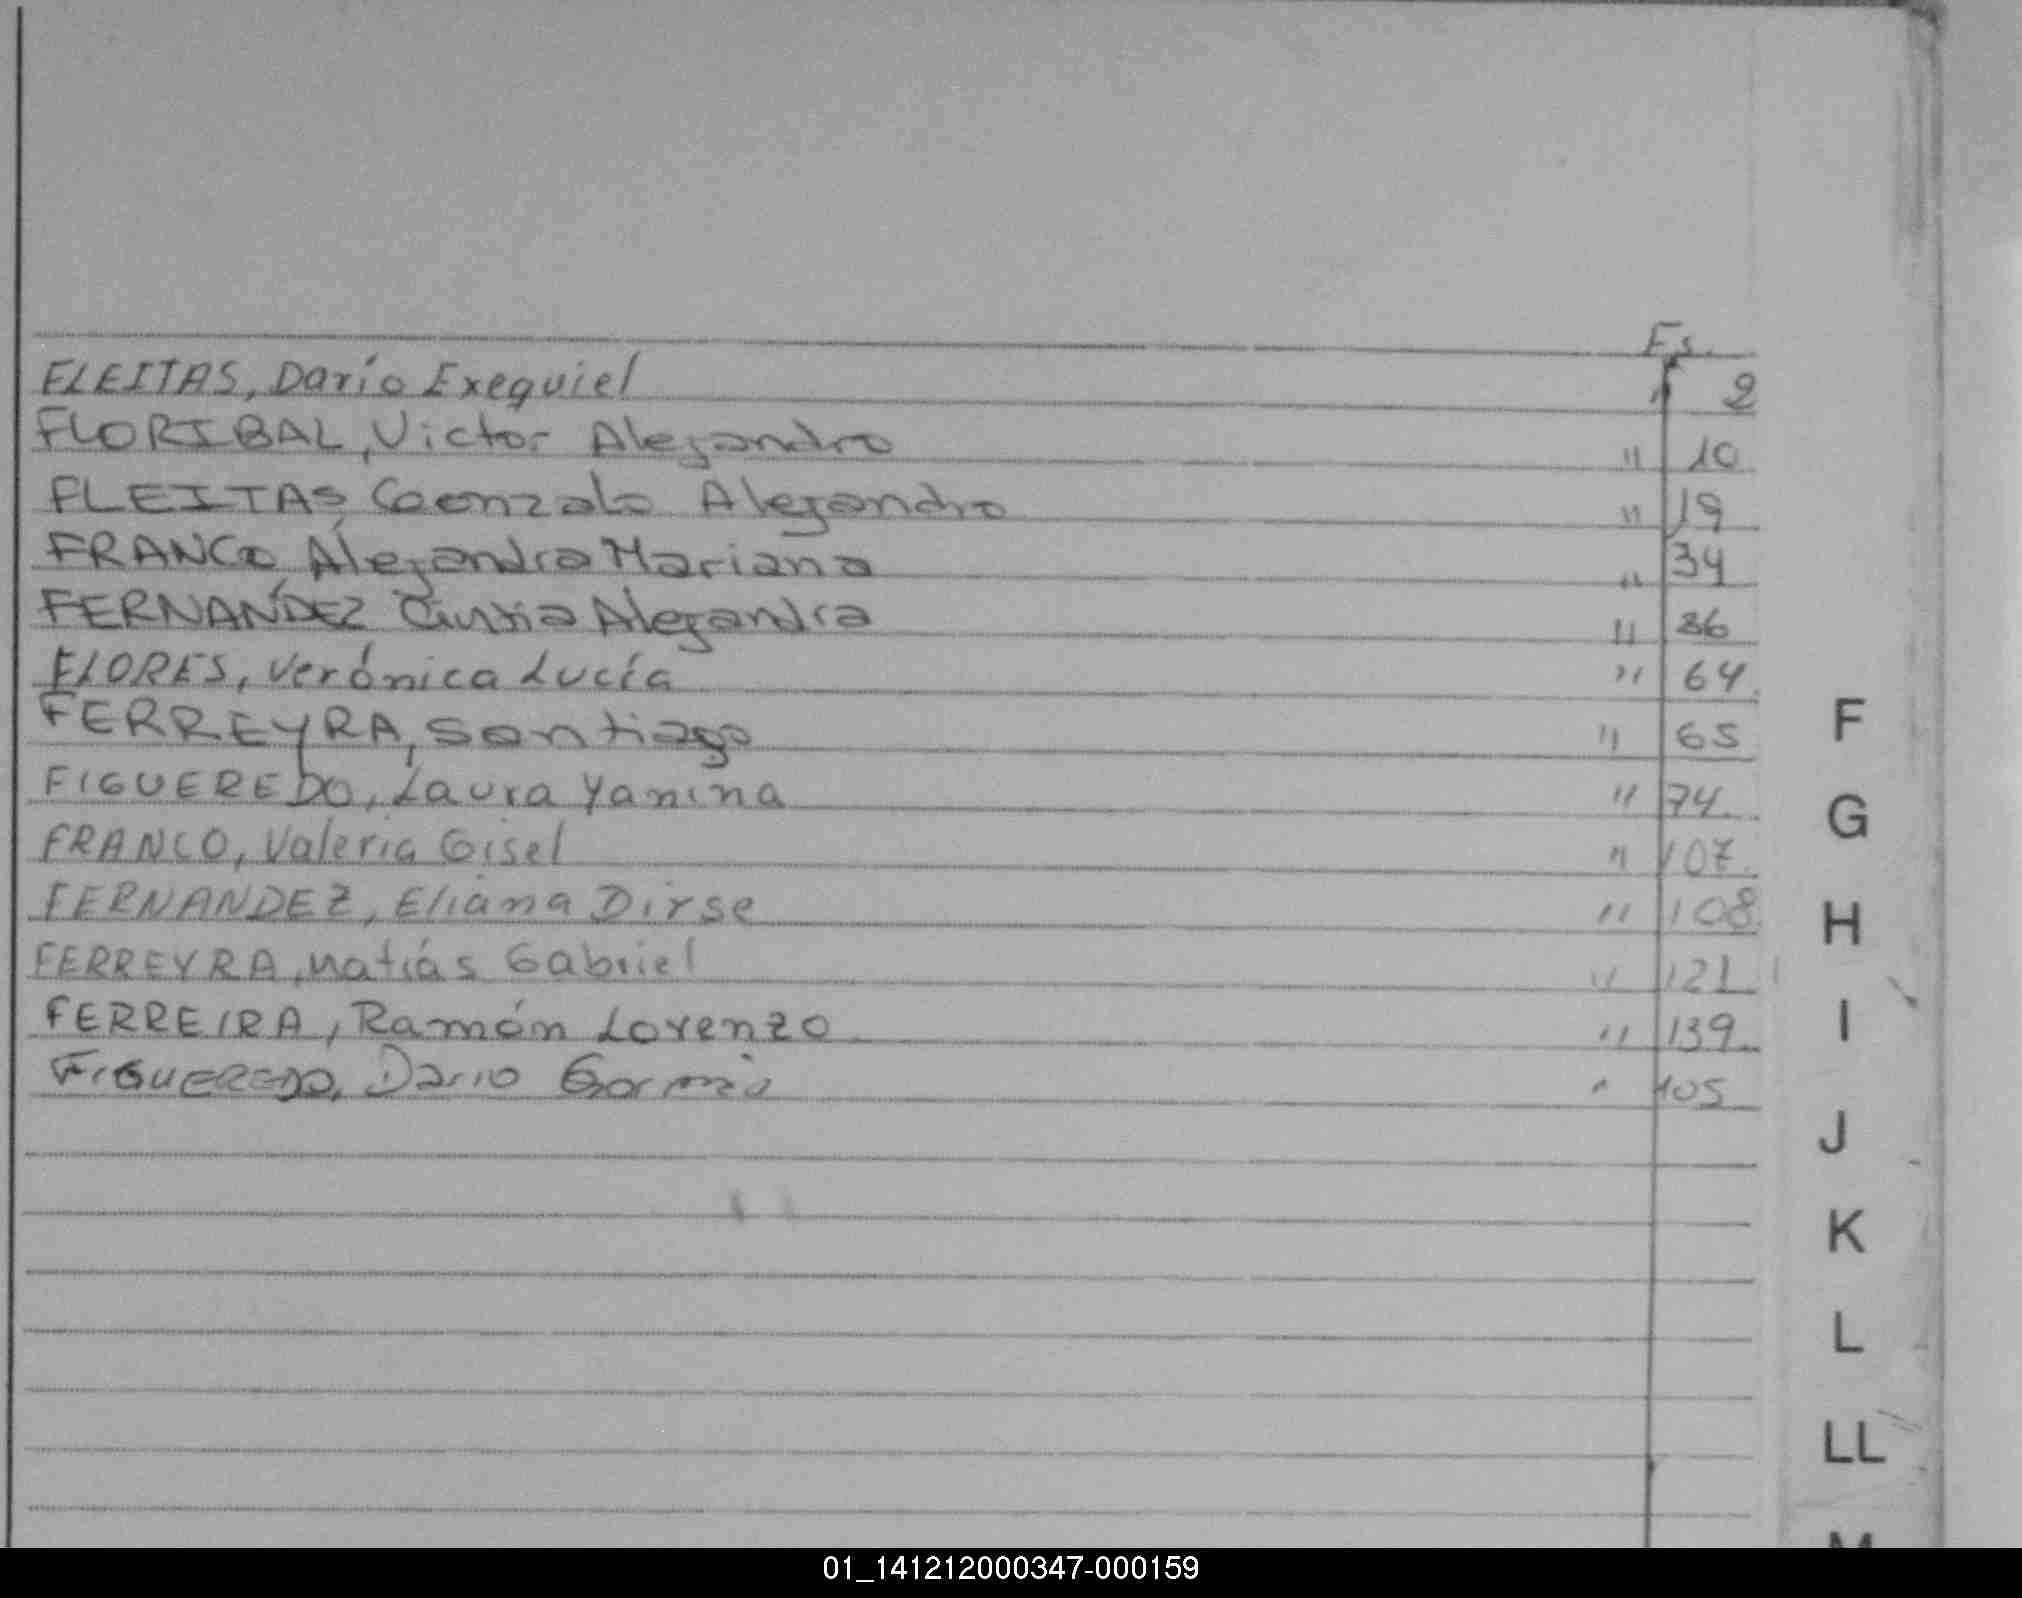 Fs.
FLEITAS, Darío Exequiel " 2
FLORIBAL, Victor Alejandro " 10
FLEITAS Gonzalo Alejandro " 19
FRANCO, Alejandra Mariana " 34
FERNANDEZ Cintia Alejandra " 36
FLORES, Verónica Lucía " 64
FERREYRA, Santiago " 65
FIGUEREDO, Laura Yanina " 74
FRANCO, Valeria Gisel " 107
FERNANDEZ, Eliana Dirse " 108
FERREYRA, Matías Gabriel " 121
FERREIRA, Ramón Lorenzo " 139
FIGUEREDO, Dario " 105
F
G
H
I
J
K
L
LL
M
01_141212000347-000159